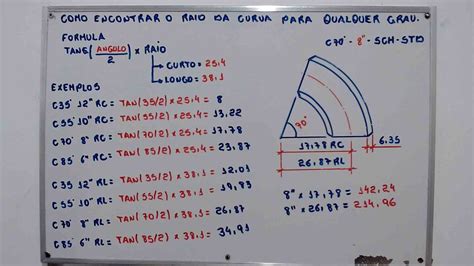 COMO ENCONTRAR O RAIO DA CURVA PARA QUALQUER GRAU.
FORMULA
TANG(ANGULO/2) x RAIO
CURTO = 25,4
LONGO = 38,1
EXEMPLOS
C35° 12" RC = TAN(35/2) x 25,4 = 8
C55° 10" RC = TAN(55/2) x 25,4 = 13,22
C70° 8" RC = TAN(70/2) x 25,4 = 17,78
C85° 6" RC = TAN(85/2) x 25,4 = 23,27
C35° 12" RL = TAN(35/2) x 38,1 = 12,01
C55° 10" RL = TAN(55/2) x 38,1 = 19,83
C70° 8" RL = TAN(70/2) x 38,1 = 26,87
C85° 6" RL = TAN(85/2) x 38,1 = 34,91
C70° - 8" - SCH-STD
70°
17,78 RC
6.35
26,87 RL
8" x 17,78 = 142,24
8" x 26,87 = 214,96